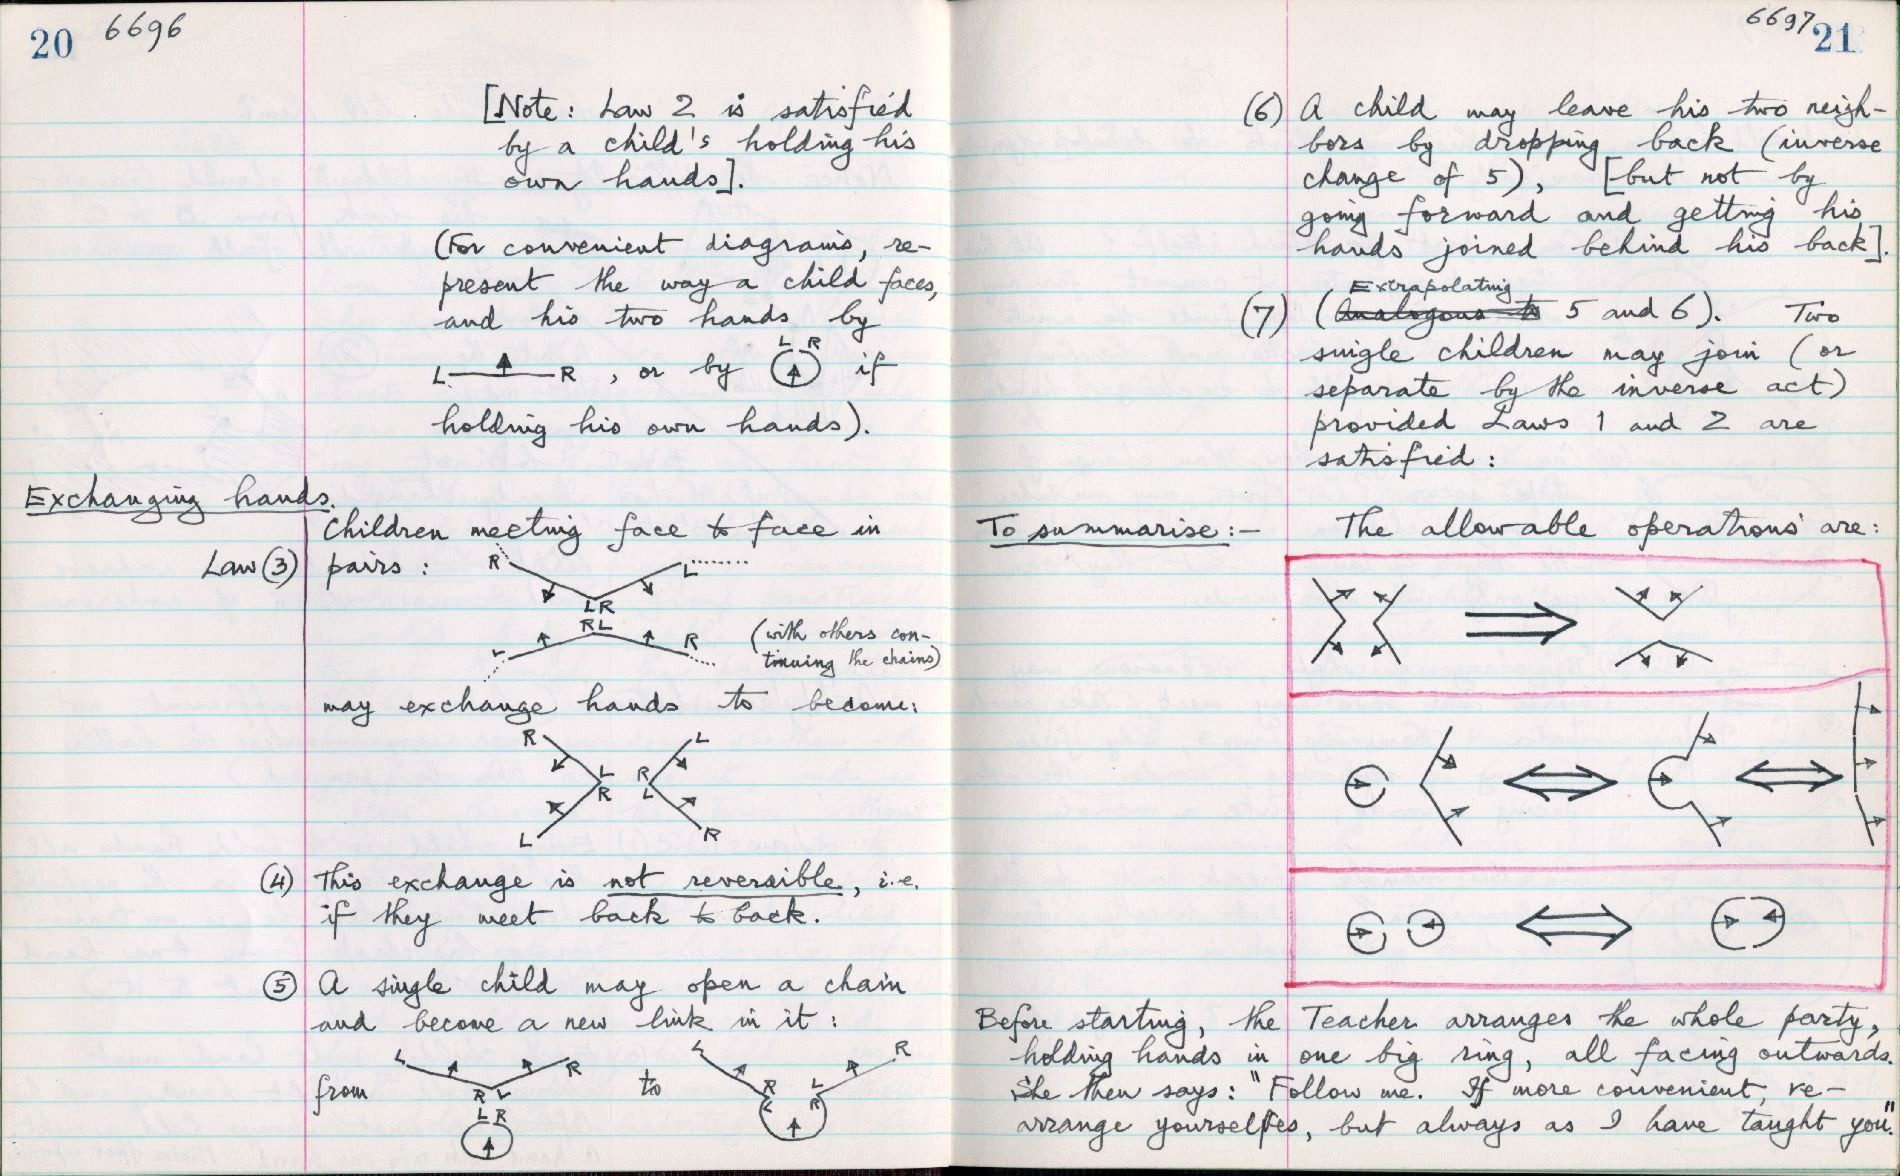 20 6696
[Note: Law 2 is satisfied
by a child's holding his
own hands].
(For convenient diagrams, re-
present the way a child faces,
and his two hands by
L R
L R , or by if
holding his own hands).
Exchanging hands.
Children meeting face to face in
Law (3) pairs :
R L
L R
R L
L R
(with others con-
tinuing the chains)
may exchange hands to become:
R L
L R
R L
L R
(4) This exchange is not reversible, i.e.
if they meet back to back.
(5) A single child may open a chain
and become a new link in it :
L R L R
from to
R L R L
L R L R
6697 21
(6) A child may leave his two neigh-
bors by dropping back (inverse
change of 5), [but not by
going forward and getting his
hands joined behind his back].
Extrapolating
(7) (Analogous to 5 and 6). Two
single children may join (or
separate by the inverse act)
provided Laws 1 and 2 are
satisfied :
To summarise :- The allowable operations are :
Before starting, the Teacher arranges the whole party,
holding hands in one big ring, all facing outwards.
She then says : "Follow me. If more convenient, re-
arrange yourselves, but always as I have taught you".